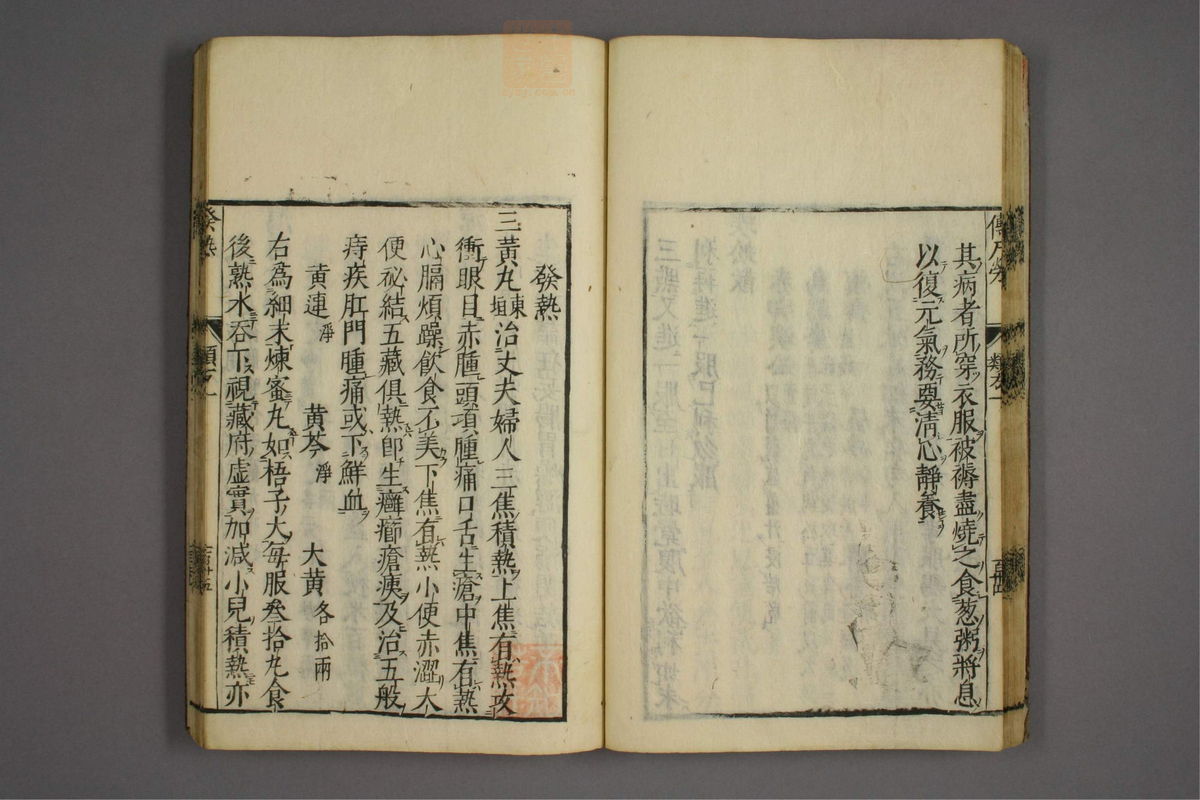 其病者所穿衣服被褥盡燒之食葱粥將息
以復元氣務要清心靜養
發熱
三黃丸東垣治丈夫婦人三焦積熱上焦有熱攻
衝眼目赤腫頭項腫痛口舌生瘡中焦有熱
心膈煩躁飲食不美下焦有熱小便赤澀大
便祕結五藏俱熱即生癰癤瘡痍及治五般
痔疾肛門腫痛或下鮮血
黃連淨 黃芩淨 大黃各拾兩
右爲細末煉蜜丸如梧子大每服叄拾丸食
後熟水吞下視藏府虛實加減小兒積熱亦
發熱